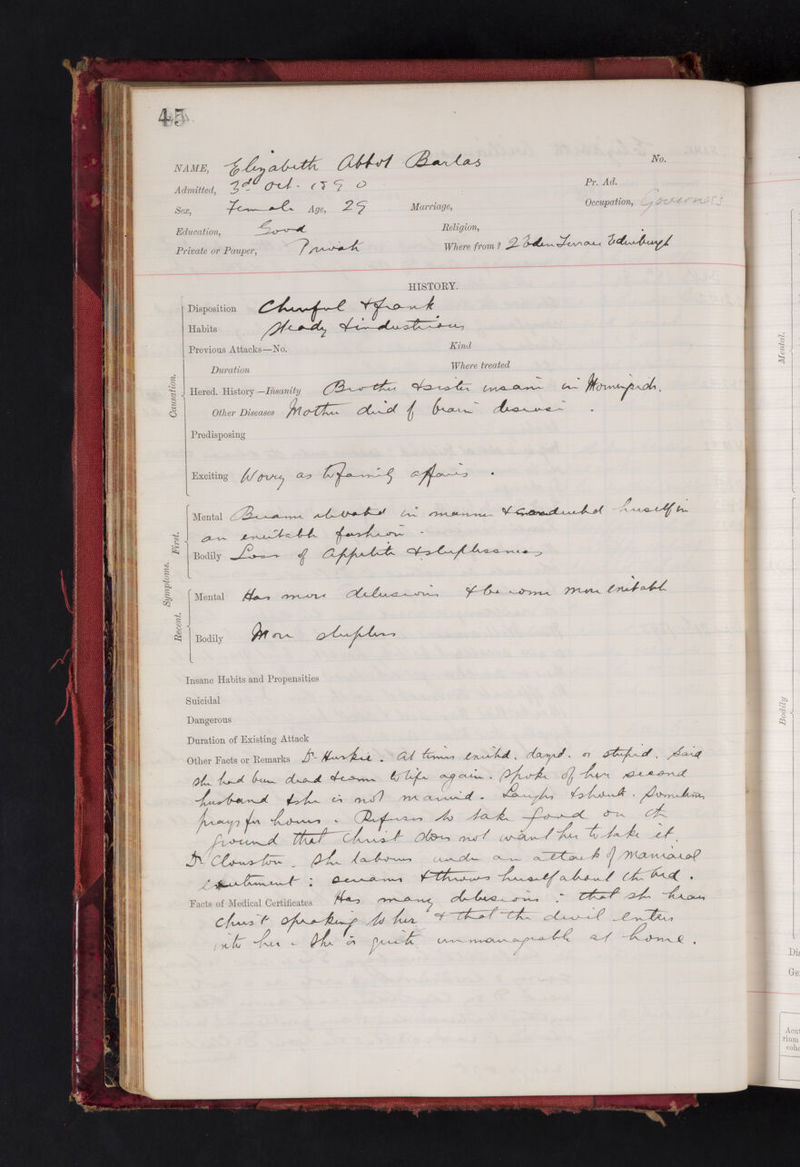 45
NAME, Elizabeth Abbot Barlas No.
Admitted, 3d Oct. 1890 Pr. Ad.
Sex, Female Age, 29 Marriage, Occupation, Governess
Education, Good Religion,
Private or Pauper, Private Where from? 2 Eden Terrace Edinburgh
HISTORY.
Causation.
Disposition Cheerful & frank
Habits Steady & industrious
Previous Attacks—No. Kind
Duration Where treated
Hered. History—Insanity Brother & sister insane in Morningside.
Other Diseases Mother died of brain disease.
Predisposing
Exciting Worry as to family affairs.
Symptoms.
First.
Mental Became elevated in manner & conducted herself in
an excitable fashion.
Bodily Loss of Appetite & sleeplessness
Recent.
Mental Has more delusions & become more excitable
Bodily More sleepless
Insane Habits and Propensities
Suicidal
Dangerous
Duration of Existing Attack
Other Facts or Remarks Dr. . At times excited, dazed, or stupid. Said
she had been dead & came to life again. Spoke of her second
husband & she is not married. Laughs & shouts. Sometimes
prays for hours. Refuses to take food on the
ground that Christ does not want her to take it.
Dr Clouston. She labours under an attack of maniacal
excitement: screams & throws herself about the bed.
Facts of Medical Certificates Has many delusions: that she hears
Christ speaking to her & that the devil enters
into her. She is quite unmanageable at home.
Mental.
Bodily
Dis
Ge
Acut
rium
cohe